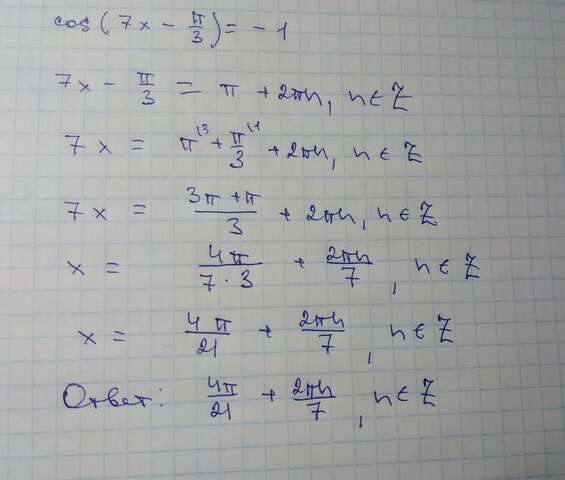 cos(7x - π/3) = -1
7x - π/3 = π + 2πn, n ∈ Z
7x = π\3 + π/3\1 + 2πn, n ∈ Z
7x = (3π + π)/3 + 2πn, n ∈ Z
x = 4π/(7·3) + 2πn/7, n ∈ Z
x = 4π/21 + 2πn/7, n ∈ Z
Ответ: 4π/21 + 2πn/7, n ∈ Z